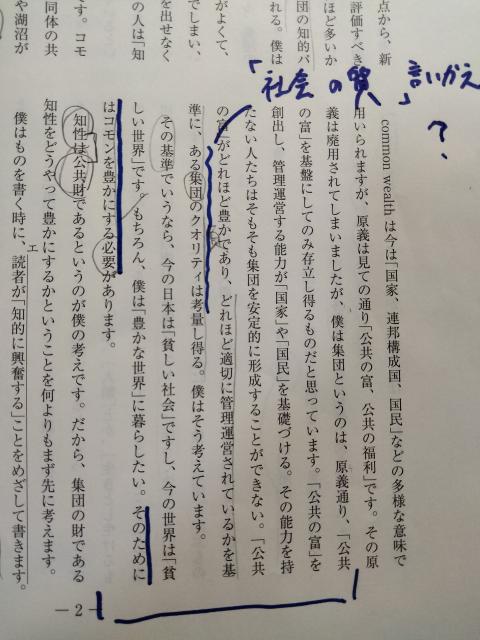 点から、新
評価すべき
ほど多いか
団の知的パ
れる。僕は
がよくて、
でしまい、
を出せなく
の人は「知
す。コモ
同体の共
や湖沼が
「社会の質」言いかえ
?
common wealth は今は「国家、連邦構成国、国民」などの多様な意味で
用いられますが、原義は見ての通り「公共の富、公共の福利」です。その原
義は廃用されてしまいましたが、僕は集団というのは、原義通り、「公共
の富」を基盤にしてのみ存立し得るものだと思っています。「公共の富」を
創出し、管理運営する能力が「国家」や「国民」を基礎づける。その能力を持
たない人たちはそもそも集団を安定的に形成することができない。「公共
の富」がどれほど豊かであり、どれほど適切に管理運営されているかを基
準に、ある集団のクオリティは考量し得る。僕はそう考えています。
その基準でいうなら、今の日本は「貧しい社会」ですし、今の世界は「貧
しい世界」です。もちろん、僕は「豊かな世界」に暮らしたい。そのために
はコモンを豊かにする必要があります。
知性は公共財であるというのが僕の考えです。だから、集団の財である
知性をどうやって豊かにするかということを何よりもまず先に考えます。
エ
僕はものを書く時に、読者が「知的に興奮する」ことをめざして書きます。
— 2 —